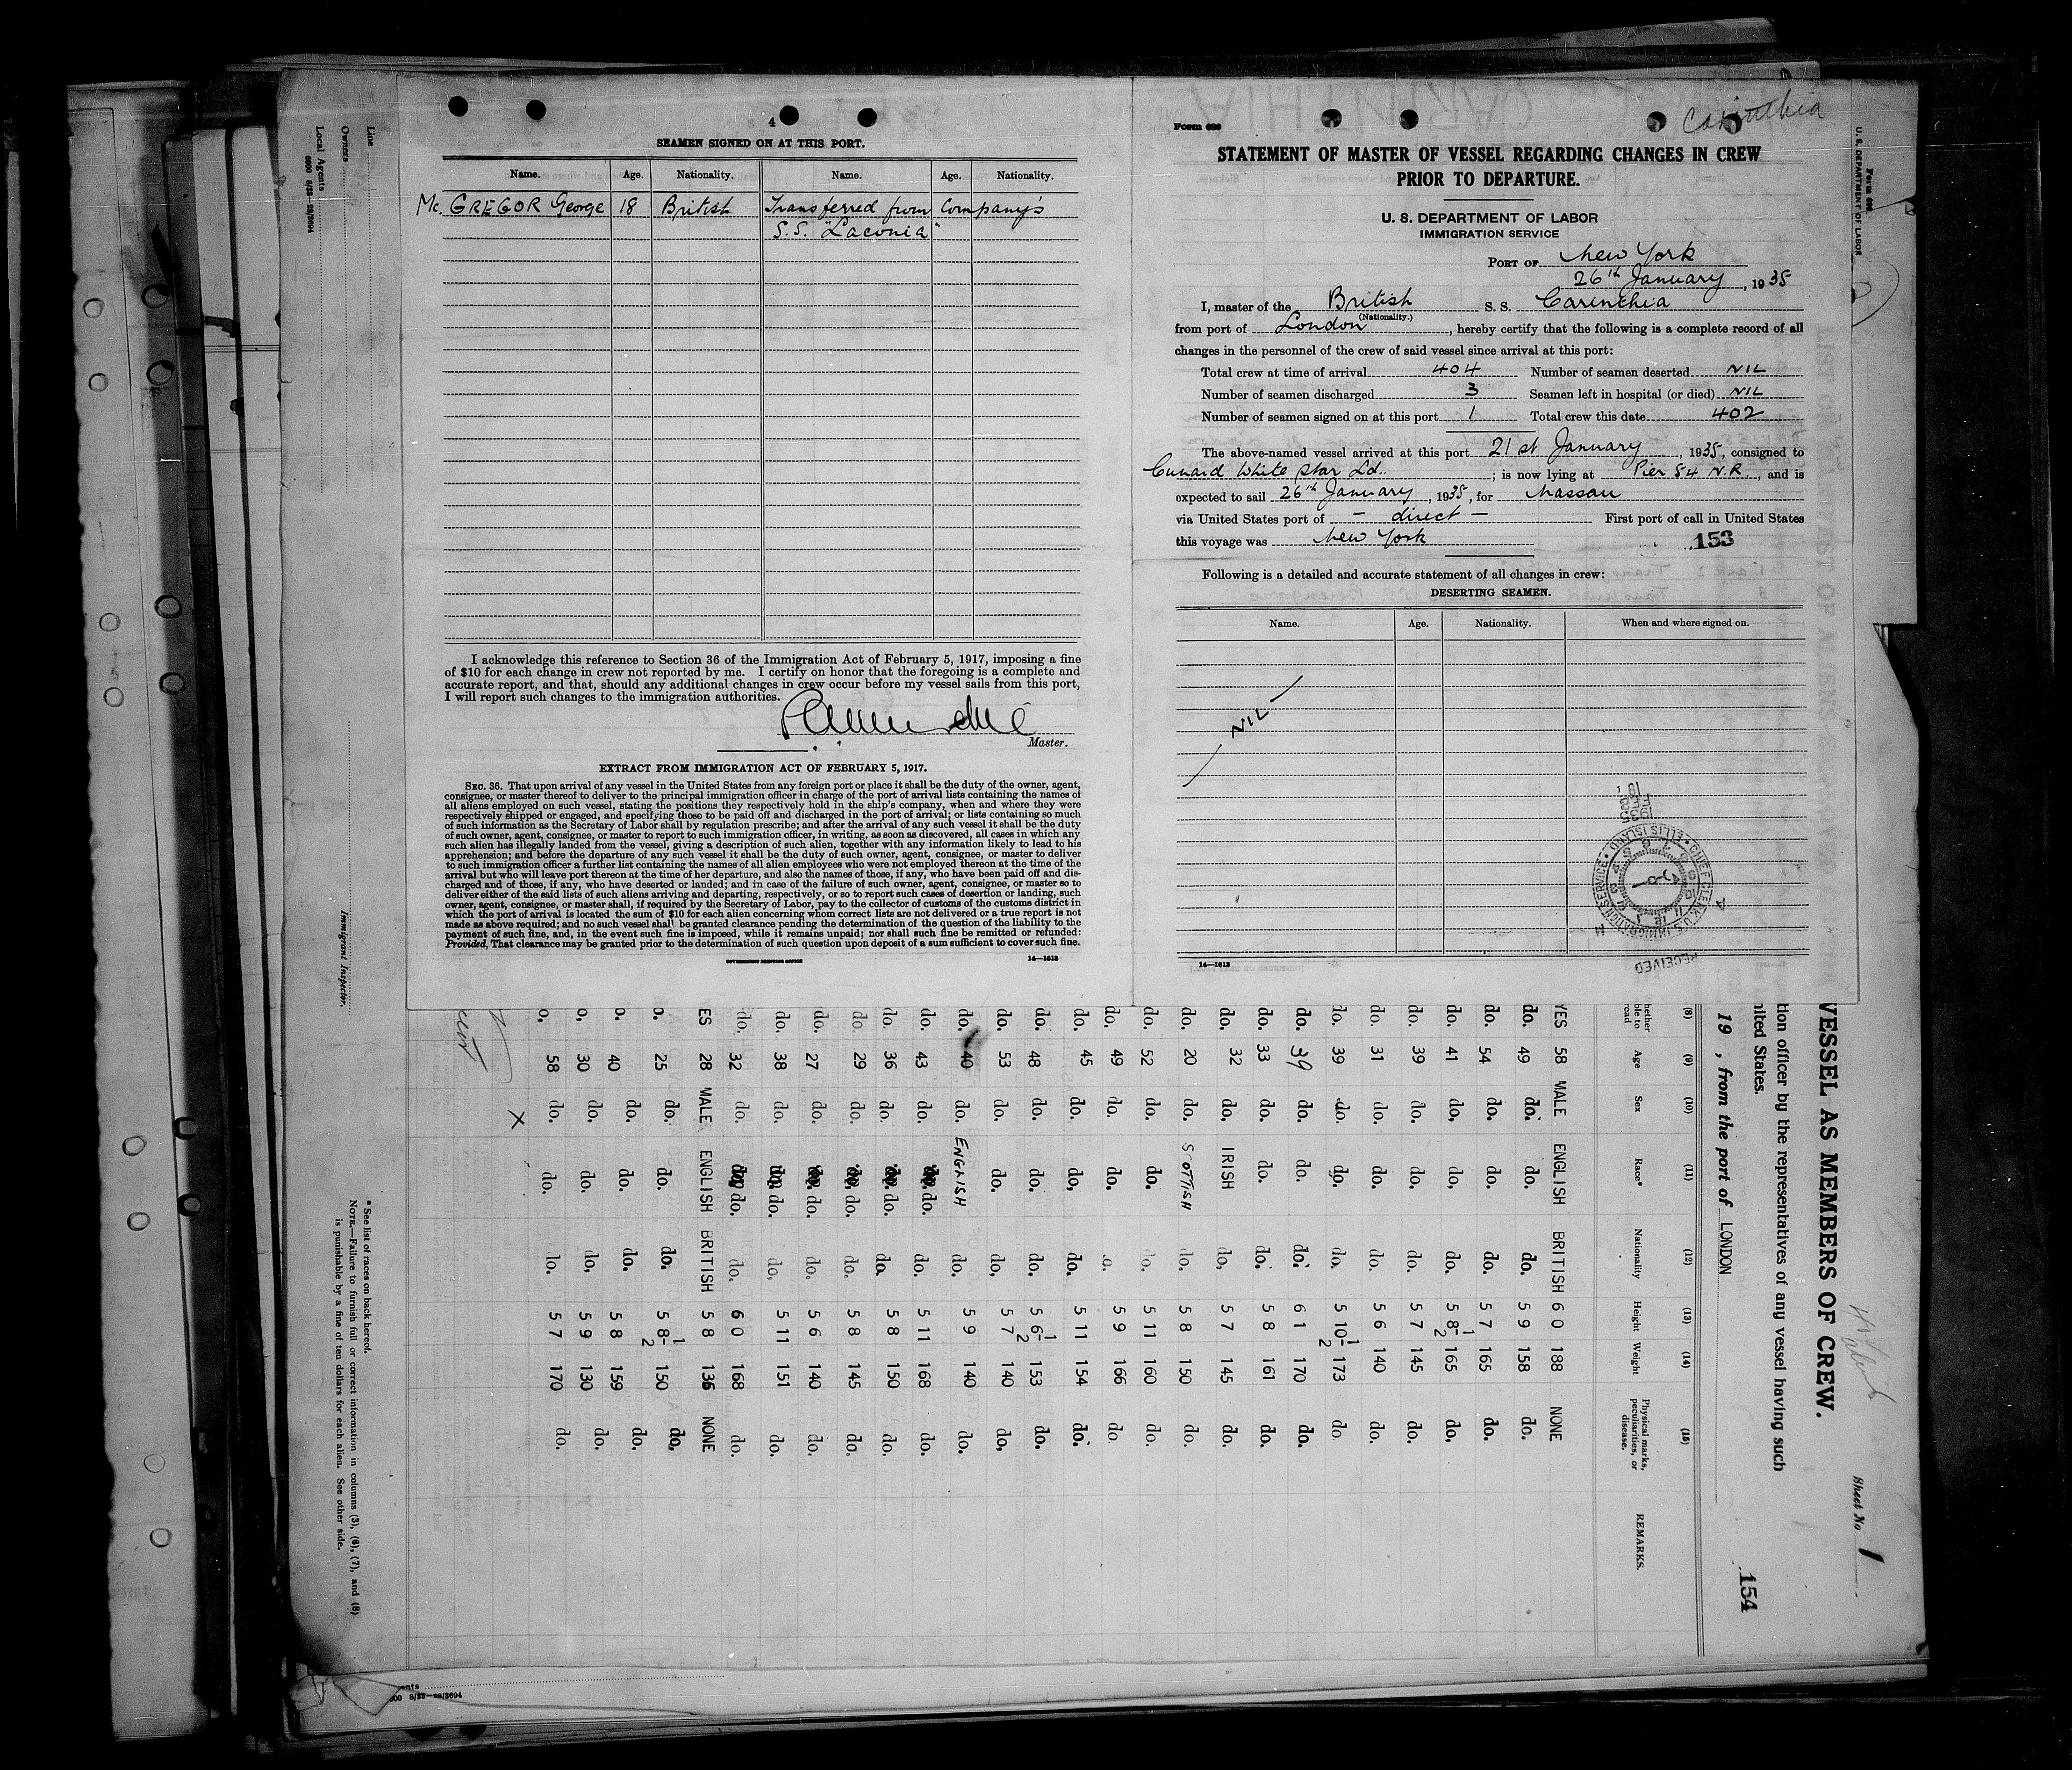 4
SEAMEN SIGNED ON AT THIS PORT.
Name. Age. Nationality. Name. Age. Nationality.
Mc. GREGOR George 18 British Transferred from Company's
S.S. "Laconia"
I acknowledge this reference to Section 36 of the Immigration Act of February 5, 1917, imposing a fine
of $10 for each change in crew not reported by me. I certify on honor that the foregoing is a complete and
accurate report, and that, should any additional changes in crew occur before my vessel sails from this port,
I will report such changes to the immigration authorities.
Master.
EXTRACT FROM IMMIGRATION ACT OF FEBRUARY 5, 1917.
SEC. 36. That upon arrival of any vessel in the United States from any foreign port or place it shall be the duty of the owner, agent,
consignee, or master thereof to deliver to the principal immigration officer in charge of the port of arrival lists containing the names of
all aliens employed on such vessel, stating the positions they respectively hold in the ship's company, when and where they were
respectively shipped or engaged, and specifying those to be paid off and discharged in the port of arrival; or lists containing so much
of such information as the Secretary of Labor shall by regulation prescribe; and after the arrival of any such vessel it shall be the duty
of such owner, agent, consignee, or master to report to such immigration officer, in writing, as soon as discovered, all cases in which any
such alien has illegally landed from the vessel, giving a description of such alien, together with any information likely to lead to his
apprehension; and before the departure of any such vessel it shall be the duty of such owner, agent, consignee, or master to deliver
to such immigration officer a further list containing the names of all alien employees who were not employed thereon at the time of the
arrival but who will leave port thereon at the time of her departure, and also the names of those, if any, who have been paid off and dis-
charged and of those, if any, who have deserted or landed; and in case of the failure of such owner, agent, consignee, or master so to
deliver either of the said lists of such aliens arriving and departing, respectively, or so to report such cases of desertion or landing, such
owner, agent, consignee, or master shall, if required by the Secretary of Labor, pay to the collector of customs of the customs district in
which the port of arrival is located the sum of $10 for each alien concerning whom correct lists are not delivered or a true report is not
made as above required; and no such vessel shall be granted clearance pending the determination of the question of the liability to the
payment of such fine, and, in the event such fine is imposed, while it remains unpaid; nor shall such fine be remitted or refunded:
Provided, That clearance may be granted prior to the determination of such question upon deposit of a sum sufficient to cover such fine.
GOVERNMENT PRINTING OFFICE 14—1613
Form 689
Carinthia
STATEMENT OF MASTER OF VESSEL REGARDING CHANGES IN CREW
PRIOR TO DEPARTURE.
U. S. DEPARTMENT OF LABOR
IMMIGRATION SERVICE
PORT OF New York
26th January, 1935
I, master of the British S. S. Carinthia
(Nationality.)
from port of London, hereby certify that the following is a complete record of all
changes in the personnel of the crew of said vessel since arrival at this port:
Total crew at time of arrival 404 Number of seamen deserted NIL
Number of seamen discharged 3 Seamen left in hospital (or died) NIL
Number of seamen signed on at this port 1 Total crew this date 402
The above-named vessel arrived at this port 21st January, 1935, consigned to
Cunard White Star Ld.; is now lying at Pier 54 N.R., and is
expected to sail 26th January, 1935, for Nassau
via United States port of — direct — First port of call in United States
this voyage was New York
153
Following is a detailed and accurate statement of all changes in crew:
DESERTING SEAMEN.
Name. Age. Nationality. When and where signed on.
— NIL —
RECEIVED
CHIEF CLERK U.S. IMMIGRATION SERVICE ELLIS ISLAND
1935 FEB
14—1613
Form 688
U. S. DEPARTMENT OF LABOR
Sheet No 1
VESSEL AS MEMBERS OF CREW.
tion officer by the representatives of any vessel having such
nited States.
19 , from the port of LONDON
154
(8) (9) (10) (11) (12) (13) (14) (15)
hether ble to read Age Sex Race* Nationality Height Weight Physical marks, peculiarities, or disease. REMARKS.
YES 58 MALE ENGLISH BRITISH 6 0 188 NONE
do. 49 do. do. do. 5 9 158 do.
do. 54 do. do. do. 5 7 165 do.
do. 41 do. do. do. 5 8-1/2 165 do.
do. 39 do. do. do. 5 7 145 do.
do. 31 do. do. do. 5 6 140 do.
do. 39 do. do. do. 5 10-1/2 173 do.
do. 39 do. do. do. 6 1 170 do.
do. 33 do. do. do. 5 8 161 do.
do. 32 do. IRISH do. 5 7 145 do.
do. 20 do. SCOTTISH do. 5 8 150 do.
do. 52 do. do. do. 5 11 160 do.
do. 49 do. do. o. 5 9 166 do
do. 45 do. do, do. 5 11 154 do.
do. 48 do. do. do. 5 6-1/2 153 do.
do. 53 do. do. do, 5 7 140 do,
do. 40 do. ENGLISH do. 5 9 140 do.
do. 43 do. do. do. 5 11 168 do.
do. 36 do. do. do. 5 8 150 do.
do. 29 do. do. do. 5 8 145 do.
do. 27 do. do. do. 5 6 140 do.
do. 38 do. do. do, 5 11 151 do.
do. 32 do. do. do. 6 0 168 do.
ES 28 MALE ENGLISH BRITISH 5 8 136 NONE
o. 25 do. do. do. 5 8-1/2 150 do,
o. 40 do. do. do. 5 8 159 do.
o, 30 do, do. do, 5 9 130 do.
o, 58 do. do. lo. 5 7 170 do.
X
* See list of races on back hereof.
NOTE.—Failure to furnish full or correct information in columns (3), (6), (7), and (8)
is punishable by a fine of ten dollars for each alien. See other side.
Line
Owners
Local Agents
Immigrant Inspector.
600 8/33—28/3694
ents
600 8/33—28/3694